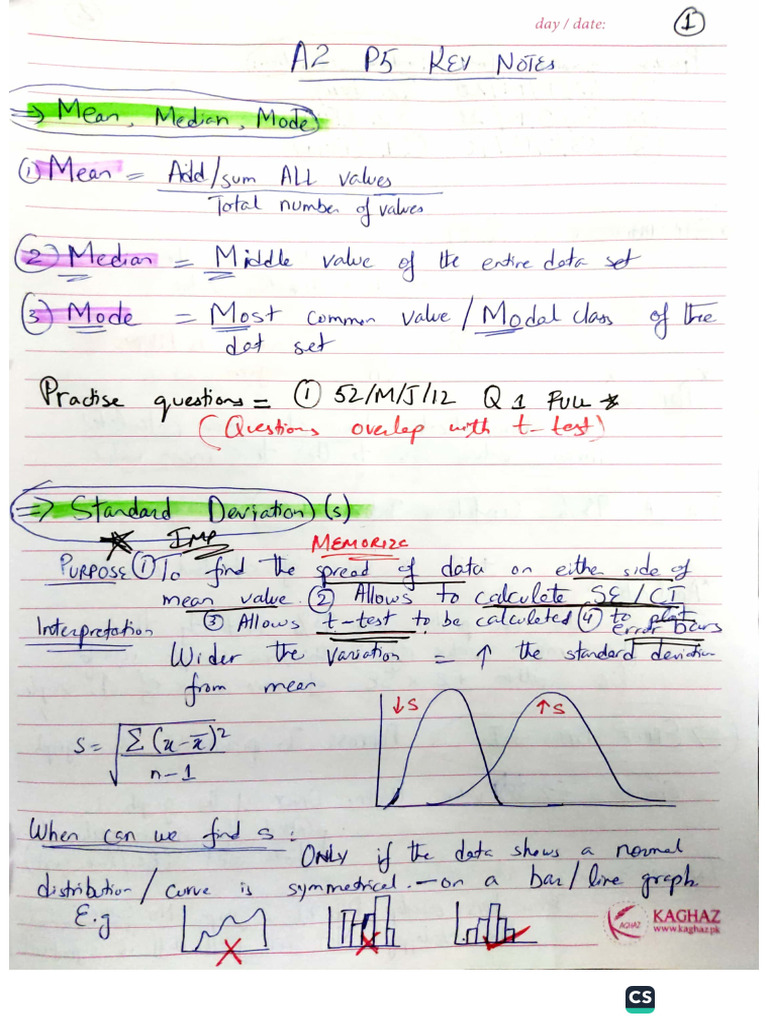 day / date:
1
A2 P5 KEY NOTES
⇒ Mean, Median, Mode
① Mean = Add/sum ALL values
Total number of values
② Median = Middle value of the entire data set
③ Mode = Most common value / Modal class of the
dat set
Practise questions = ① 52/M/J/12 Q 1 FULL *
(Questions overlap with t-test)
⇒ Standard Deviation (s)
IMP MEMORIZE
PURPOSE ① To find the spread of data on either side of
mean value. ② Allows to calculate SE/CI
③ Allows t-test to be calculated ④ to plot
error bars
Interpretation
Wider the variation = ↑ the standard deviation
from mean
↓s ↑s
s = √ Σ (x - x̄)²
n-1
When can we find s:
ONLY if the data shows a normal
distribution / curve is symmetrical. - on a bar/line graph
E.g
KAGHAZ
KAGHAZ
www.kaghaz.pk
CS